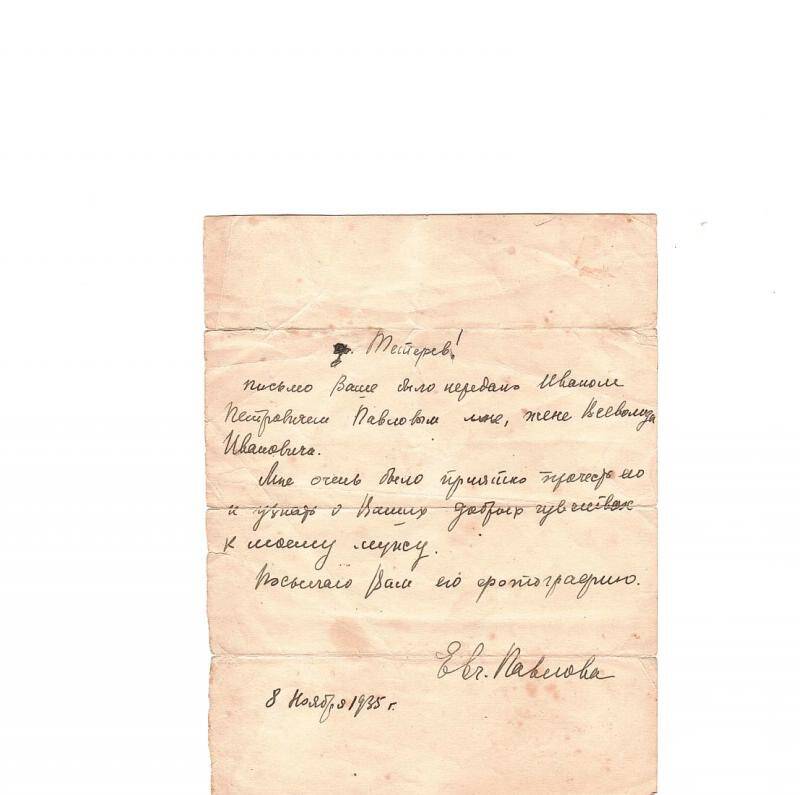 гр. Тетерев!
письмо Ваше было передано Иваном
Петровичем Павловым мне, жене Всеволода
Ивановича.
Мне очень было приятно прочесть его
и узнать о Ваших добрых чувствах
к моему мужу.
Посылаю Вам его фотографию.
Евг. Павлова
8 Ноября 1935 г.